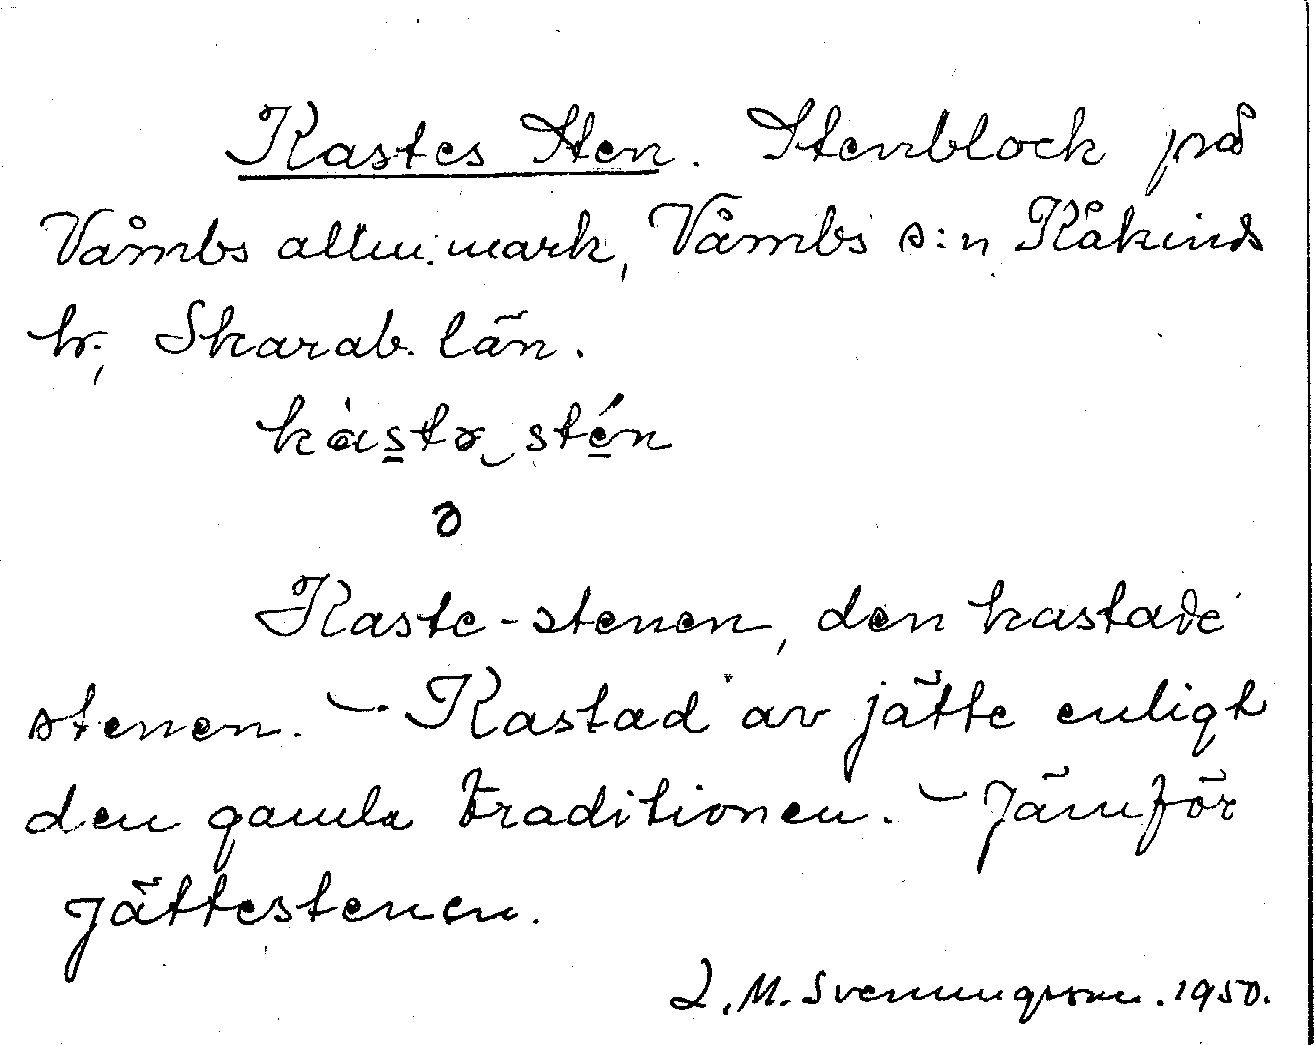 Kastes Sten. Stenblock på
Våmbs allm. mark, Våmbs s:n Kåkinds
hr., Skarab. län.
kàstə stén
ə
Kaste-stenen, den kastade
stenen. – Kastad av jätte enligt
den gamla traditionen. – Jämför
Jättestenen.
L. M. Svenungsson. 1950.